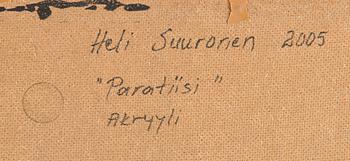 Heli Suuronen 2005
"Paratiisi"
Akryyli